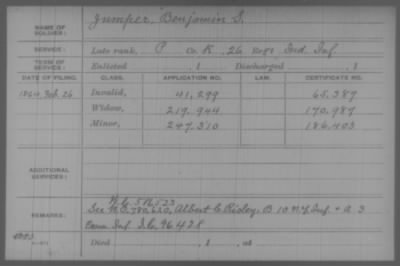 NAME OF SOLDIER: Jumper, Benjamin S.
SERVICE: Late rank, P Co. K, 26 Reg't Ind. Inf
TERM OF SERVICE: Enlisted , 1 Discharged , 1
DATE OF FILING. CLASS. APPLICATION NO. LAW. CERTIFICATE NO.
1864, Feb. 26 Invalid, 41,299 65,387
Widow, 219,944 170,987
Minor, 247,310 186,403
ADDITIONAL SERVICES:
W.C. 516523
REMARKS: See W.O. 780,620, Albert C. Risley, B 10 N.Y. Inf. + A. 3
Conn. Inf. I.C. 96428
Died , 1 , at